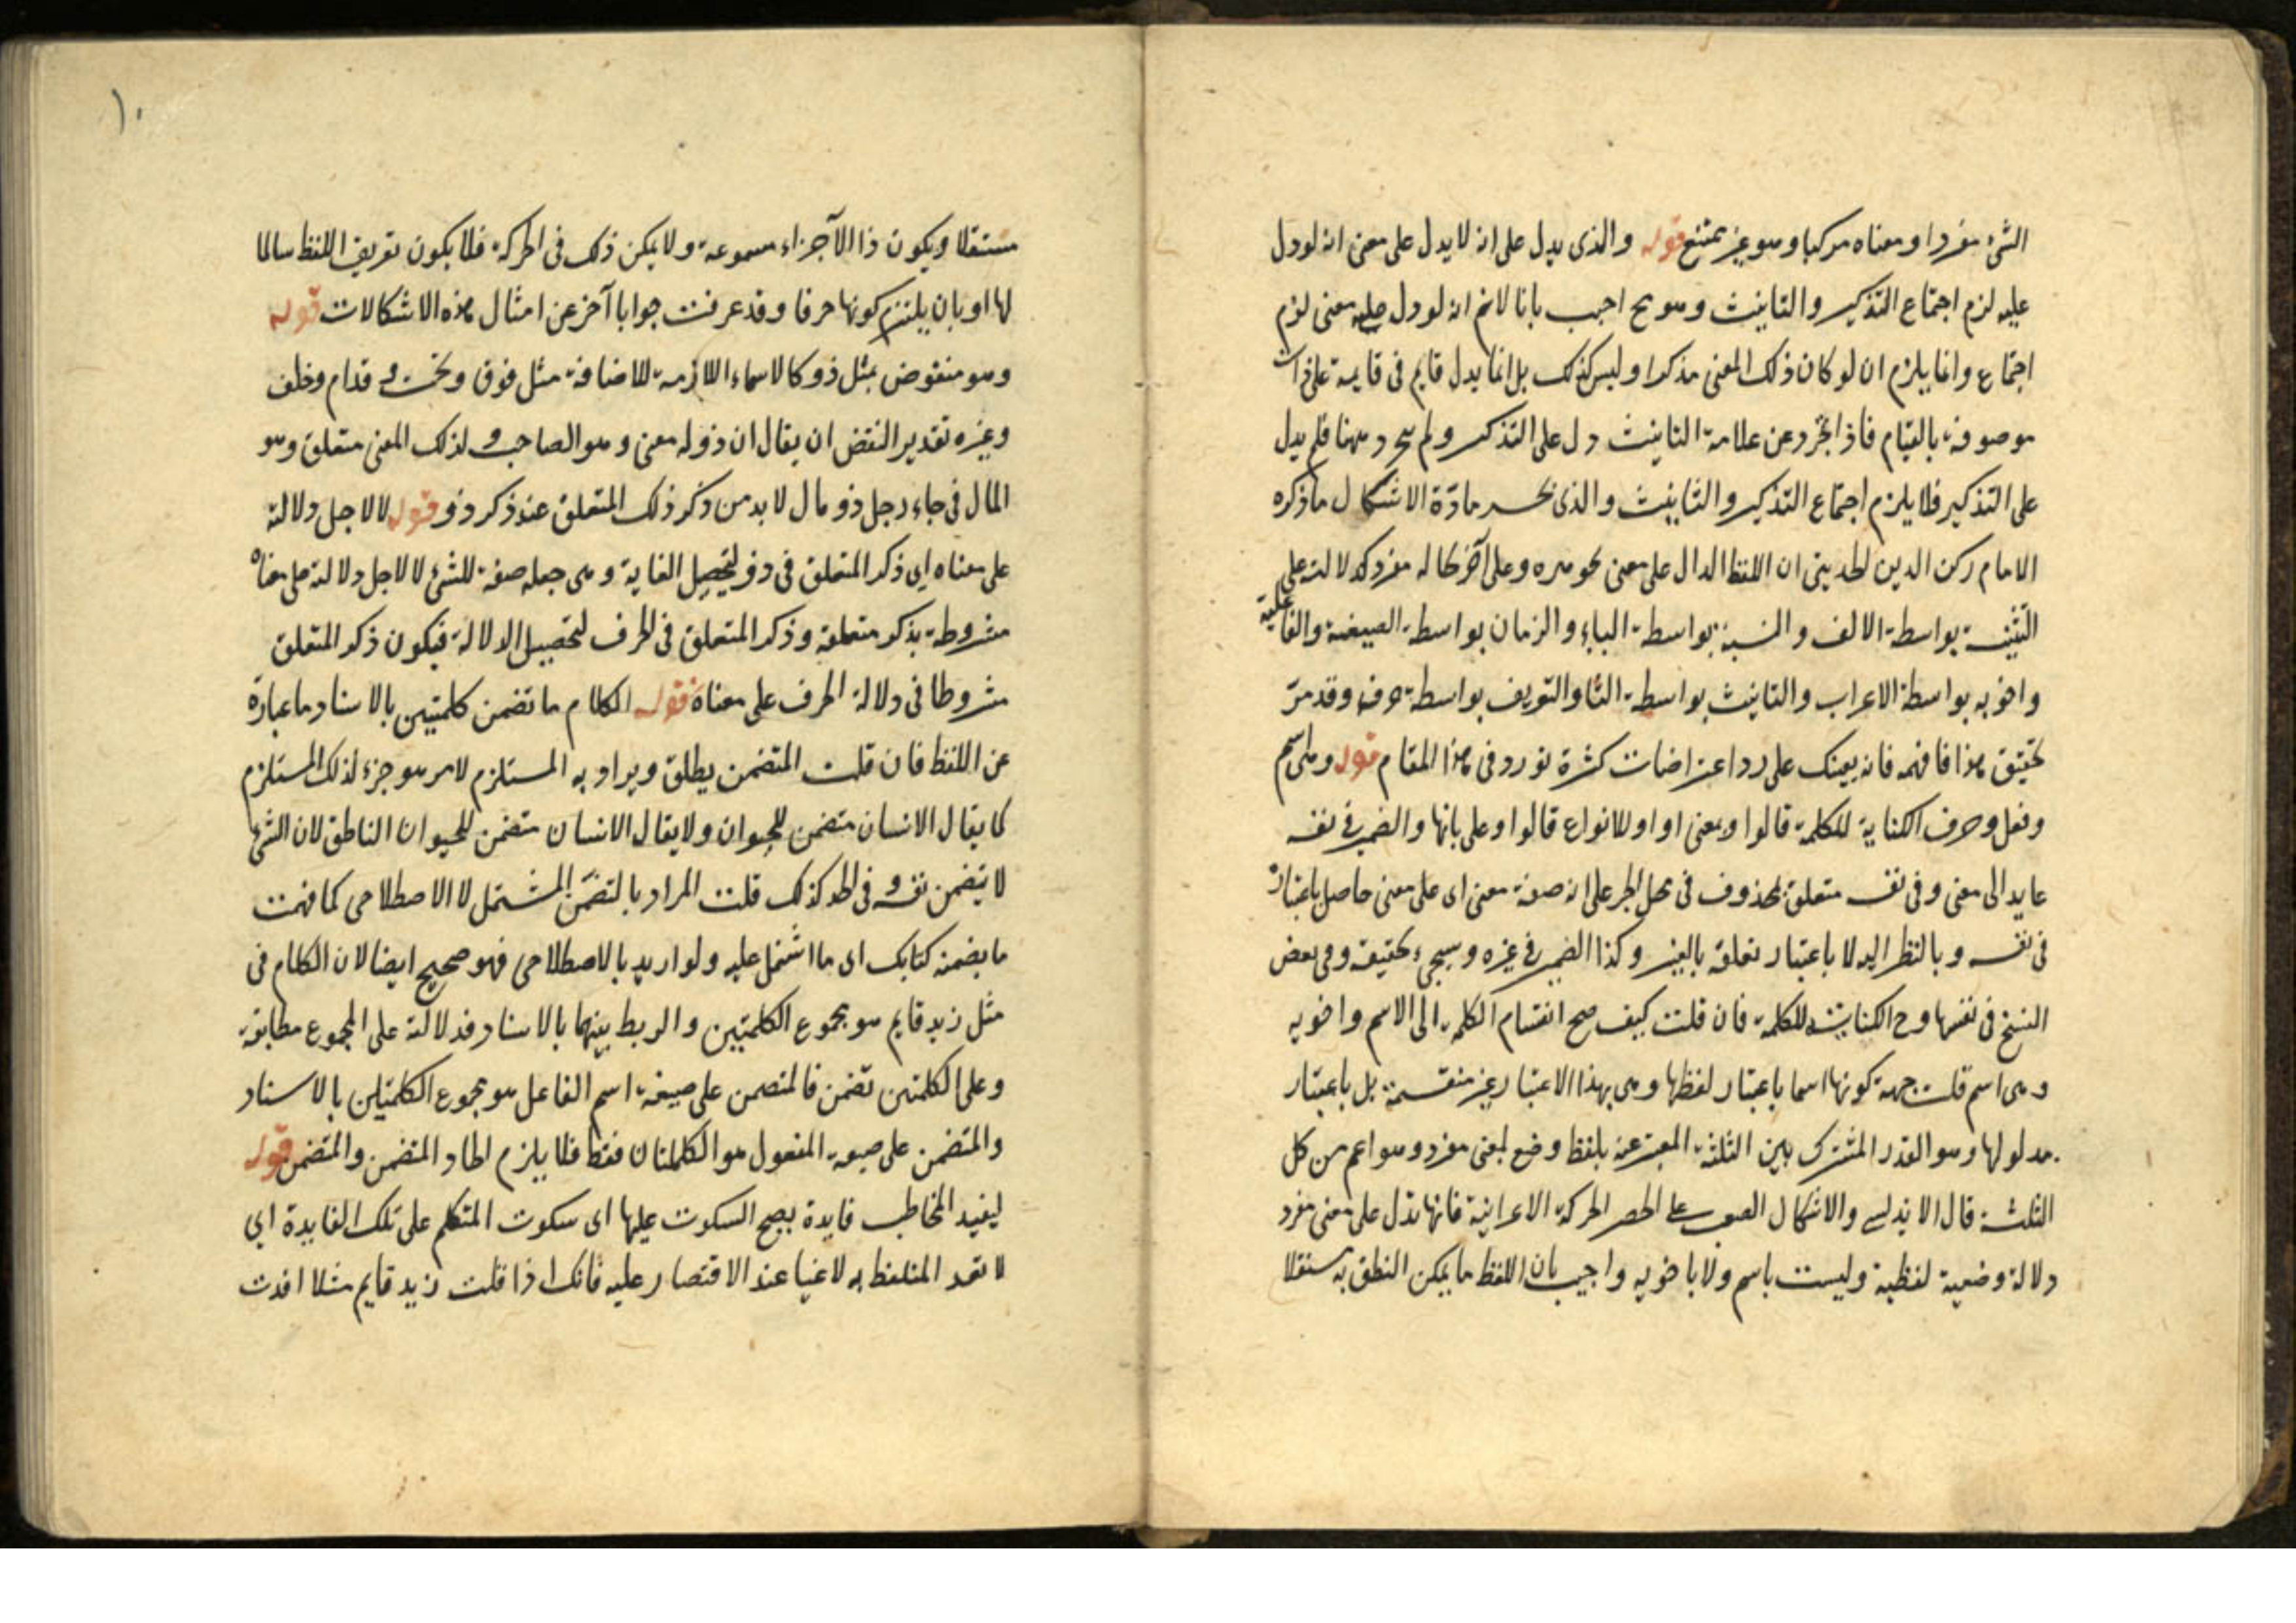 الشئ مفردا ومعناه مركبا وهو غير ممتنع قوله والذى يدل على انه لا يدل على معنى انه لو دل
عليه لزم اجتماع التذكير والتانيث وهو مح اجيب بانا لانم انه لو دل عليه معنى لزم
اجتماع وانما يلزم ان لو كان ذلك المعنى مذكرا وليس كذلك بل انما يدل قايم فى قايمة على ذات
موصوفة بالقيام فاذا تجرد عن علامة التانيث دل على التذكير ولم يتجرد ههنا فلم يدل
على التذكير فلا يلزم اجتماع التذكير والتانيث والذى مادّة الاشكال ما ذكره
الامام ركن الدين الحديثى ان اللفظ الدال على معنى بجوهره وعلى آخر بحاله مفرد كدلالته على
التثنية بواسطة الالف والنسبة بواسطة الياء والزمان بواسطة الصيغة والفاعلية
واخويه بواسطة الاعراب والتانيث بواسطة التا والتعريف بواسطة حرفه وقد مرّ
تحقيق هذا فافهمه فانه يعينك على رد اعتراضات كثيرة تورد فى هذا المقام قوله وهى اسم
وفعل وحرف الكناية للكلمة قالوا وبمعنى او او للانواع قالوا وعلى بابها والضمير فى نفسه
عايد الى معنى وفى نفسه متعلق بمحذوف فى محل الجر على انه صفة معنى اى على معنى حاصل باعتباره
فى نفسه وبالنظر اليه لا باعتبار تعلقه بالغير وكذا الضمير فى غيره وسيجىء تحقيقه وفى بعض
النسخ فى نفسها وح الكناية للكلمة فان قلت كيف صح انقسام الكلمة الى الاسم واخويه
وهى اسم قلت جهة كونها اسما باعتبار لفظها وهى بهذا الاعتبار غير منقسمة بل باعتبار
مدلولها وهو القدر المشترك بين الثلثة المعبر عنه بلفظ وضع لمعنى مفرد وهو اعم من كل
الثلثة قال الاندلسى والاشكال الصعب على الحصر الحركة الاعرابية فانها تدل على معنى مفرد
دلالة وضعية لفظية وليست باسم ولا باخويه واجيب بان اللفظ ما يمكن النطق به مستقلا
١٠
مستقلا ويكون ذا الآجزاء مسموعة ولا يمكن ذلك فى الحركة فلا يكون تعريف اللفظ سالما
لها او بان يلتزم كونها حرفا وقد عرفت جوابا آخر عن امثال هذه الاشكالات قوله
وهو منقوض بمثل ذو كالاسماء اللازمة للاضافة مثل فوق وتحت وقدام وخلف
وغيره تقدير النقض ان يقال ان ذو له معنى وهو الصاحب ولذلك المعنى متعلق وهو
المال فى جاء رجل ذو مال لا بد من ذكر ذلك المتعلق عند ذكر ذو قوله لا لاجل دلالته
على معناه اى ذكر المتعلق فى ذو لتحصيل الغاية وهى جعله صفة للشئ لا لاجل دلالته على معناه
مشروطة بذكر متعلقه وذكر المتعلق فى الحرف لتحصيل الدلالة فيكون ذكر المتعلق
مشروطا فى دلالة الحرف على معناه قوله الكلام ما تضمن كلمتين بالاسناد ما عبارة
عن اللفظ فان قلت المتضمن يطلق ويراد به المستلزم لامر هو جزء لذلك المستلزم
كما يقال الانسان متضمن للحيوان ولا يقال الانسان متضمن للحيوان الناطق لان الشئ
لا يتضمن نفسه وفى الحد كذلك قلت المراد بالتضمّن المشتمل لا الاصطلاحى كما فهمت
ما يضمنه كتابك اى ما اشتمل عليه ولو اريد بالاصطلاحى فهو صحيح ايضا لان الكلام فى
مثل زيد قايم هو مجموع الكلمتين والربط بينهما بالاسناد فدلالته على المجموع مطابقة
وعلى الكلمتين تضمن فالمتضمن على صيغة اسم الفاعل هو مجموع الكلمتين بالاسناد
والمتضمن على صيغة المفعول هو الكلمتان فقط فلا يلزم اتحاد المتضمن والمتضمن قوله
ليفيد المخاطب فايدة يصح السكوت عليها اى سكوت المتكلم على تلك الفايدة اى
لا يعد المتلفظ به لاغيا عند الاقتصار عليه فانك اذا قلت زيد قايم مثلا افدت